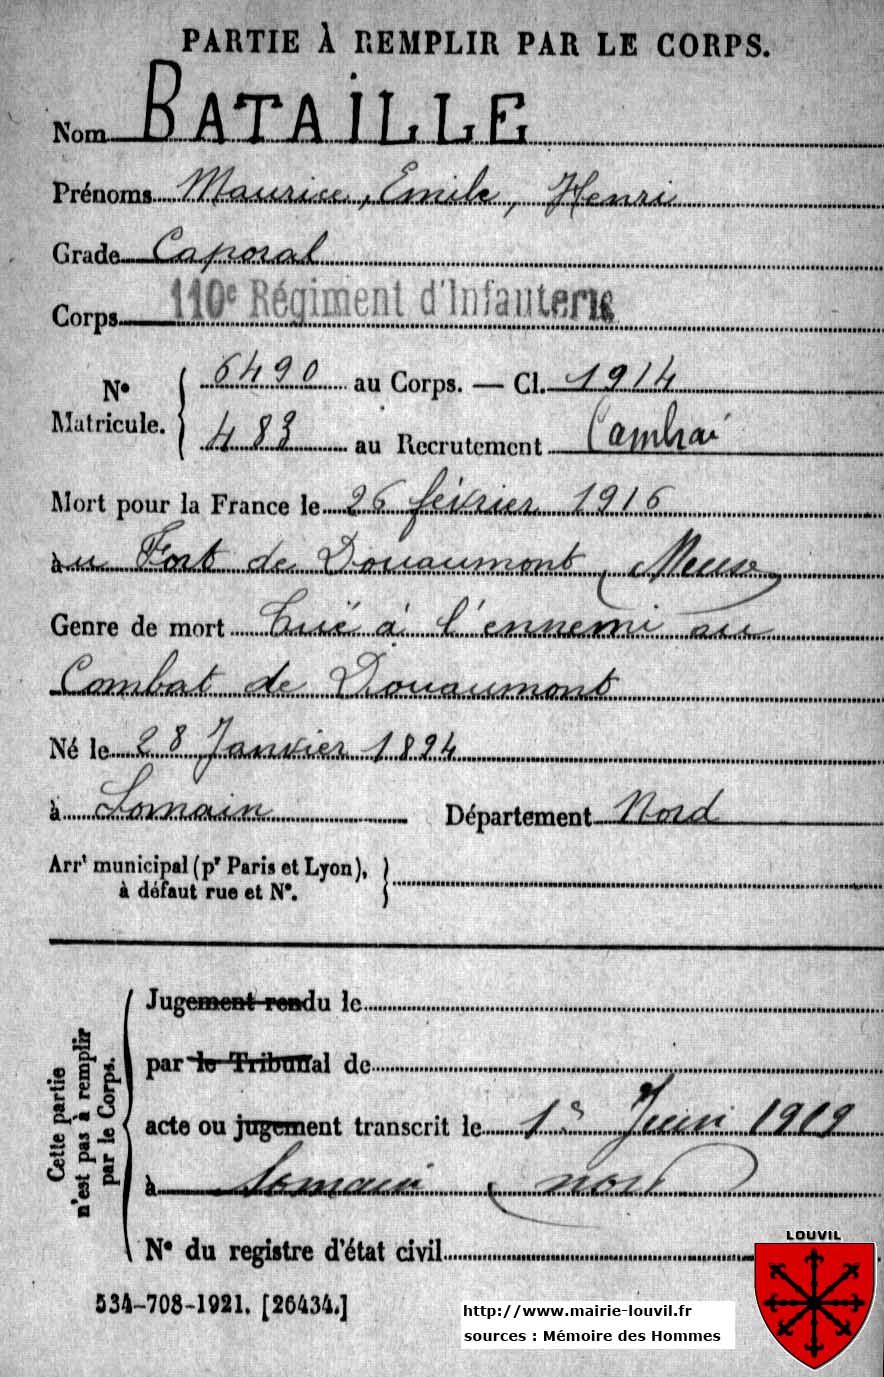 PARTIE À REMPLIR PAR LE CORPS.
Nom BATAILLE
Prénoms Maurice, Emile, Henri
Grade Caporal
Corps 110e Régiment d'Infanterie
No Matricule. 6490 au Corps. — Cl. 1914
483 au Recrutement Cambrai
Mort pour la France le 26 février 1916
au Fort de Douaumont (Meuse)
Genre de mort tué à l'ennemi au
Combat de Douaumont
Né le 28 Janvier 1894
à Somain Département Nord
Arrt municipal (pr Paris et Lyon),
à défaut rue et No.
Cette partie
n'est pas à remplir
par le Corps.
Jugement rendu le
par le Tribunal de
acte ou jugement transcrit le 1er Juin 1919
à Somain (nord)
No du registre d'état civil
534-708-1921. [26434.]
LOUVIL
http://www.mairie-louvil.fr
sources : Mémoire des Hommes